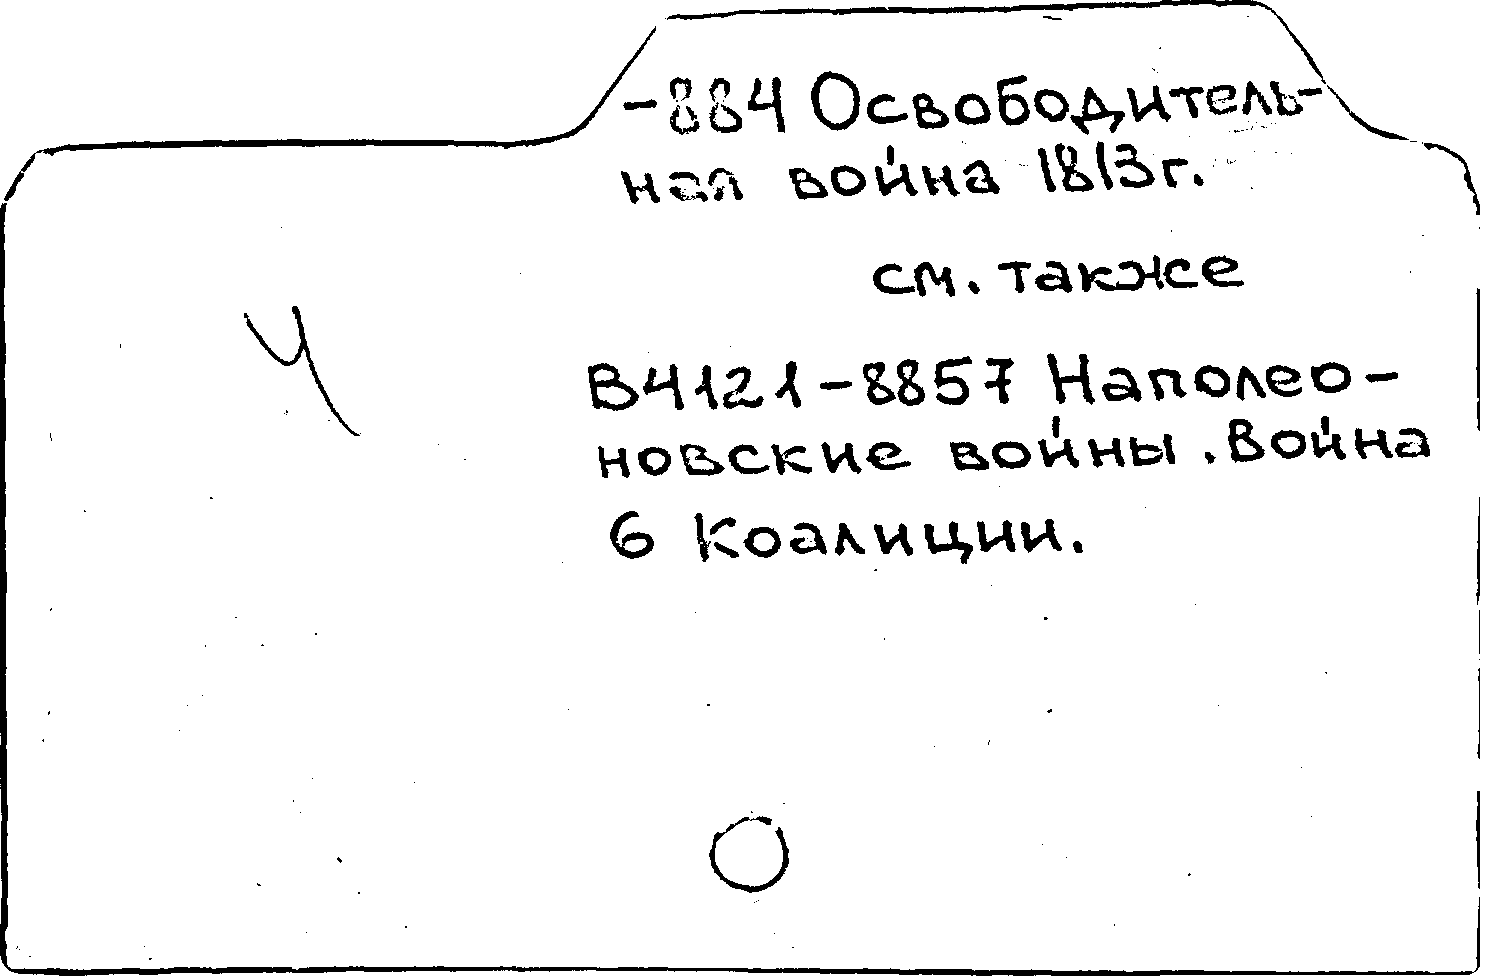 -884 Освободитель-
ная война 1813г.
см. также
Ч
В4121-8857 Наполео-
новские войны. Война
6 Коалиции.